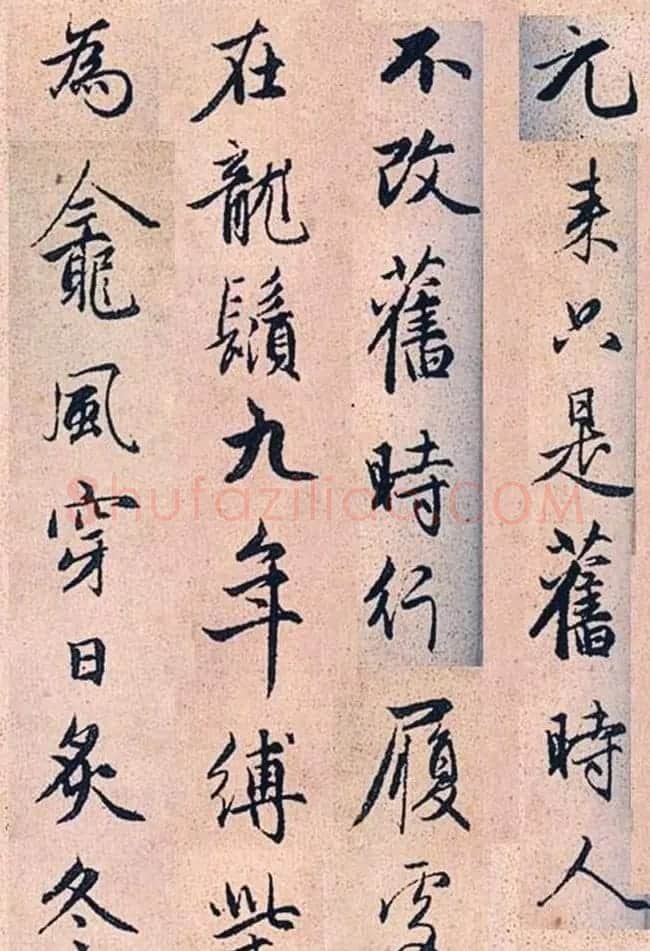 元来只是舊時人
不改舊時行履
在龍鬚九年縛
為龕風穿日炙冬
Shufaziliao.COM